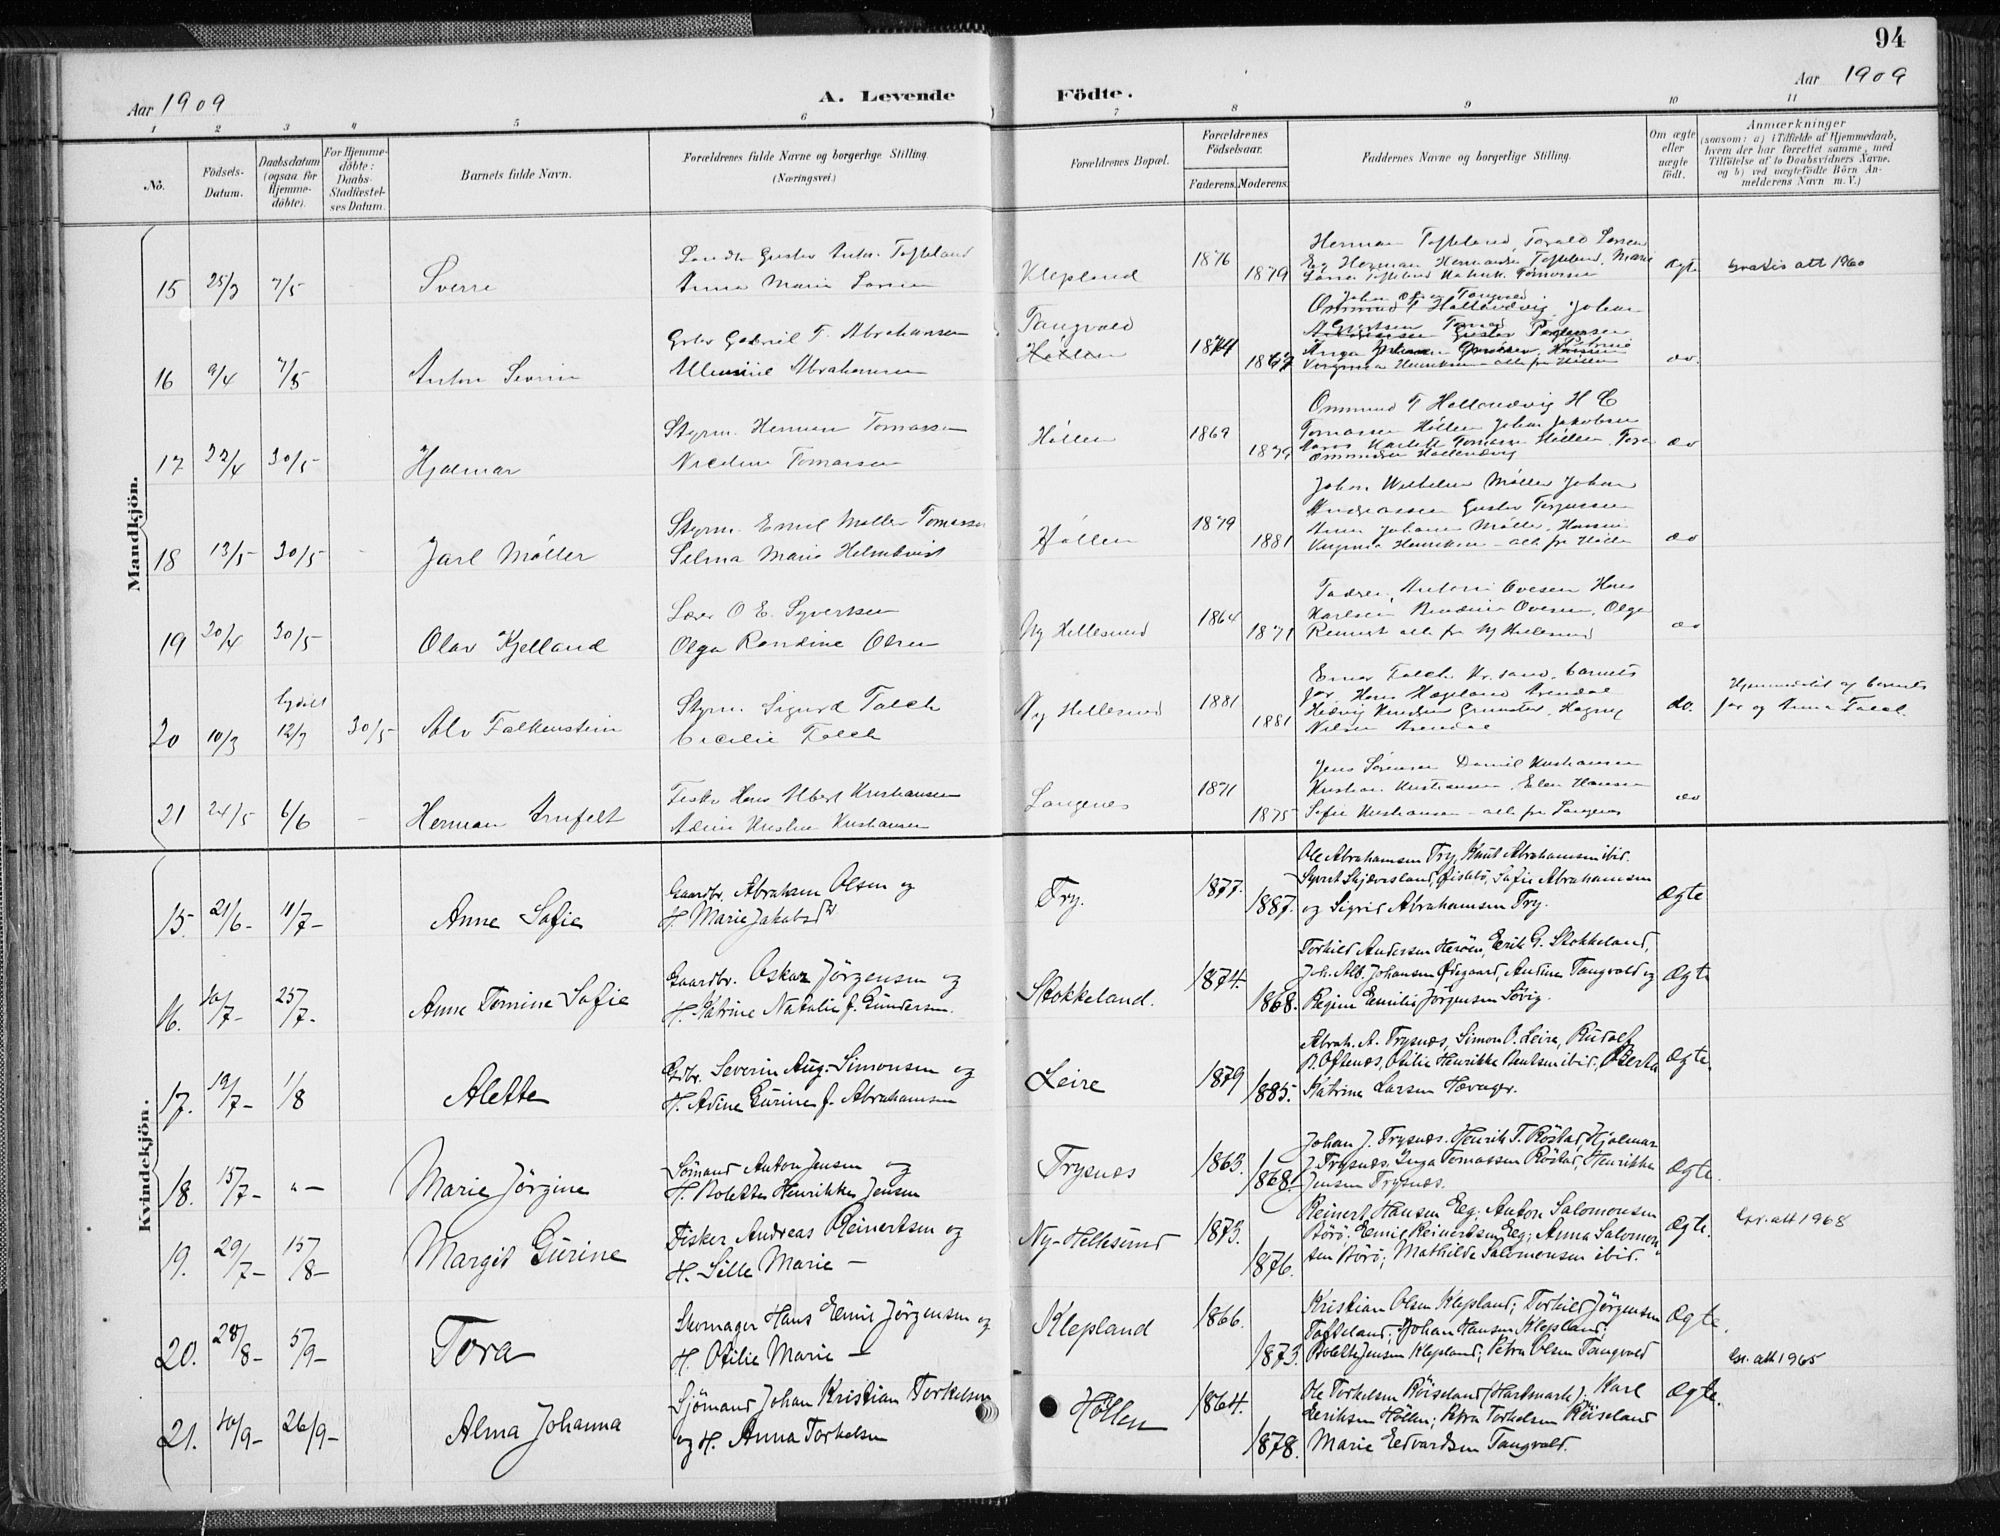 94
Aar 1909
A. Levende Födte.
Aar 1909
1 2 3 4 5 6 7 8 9 10 11
No.
Födsels-Datum.
Daabsdatum (ogsaa for Hjemme-döbte).
For Hjemme-döbte: Daabs-Stadfæstel-ses Datum.
Barnets fulde Navn.
Forældrenes fulde Navne og borgerlige Stilling (Næringsvei.)
Forældrenes Bopæl.
Forældrenes Födselsaar.
Faderens. Moderens.
Faddernes Navne og borgerlige Stilling.
Om ægte eller uægte födt.
Anmærkninger
(saasom: a) i Tilfælde af Hjemmedaab,
hvem der har forrettet samme, med
Tilföielse af to Daabsvidners Navne.
og b) ved uægtefödte Börn An-
melderens Navn m. V.)
Mandkjön.
15 25/3 7/5 - Sverre
Gustav Anton Tofteland
Anna Marie Larsen
Klepland 1876 1879
Herman Tofteland, Torald Larsen
Eeg Herman Hermansen Tofteland, Marie
ægte
attest 1960
16 9/4 7/5 Anton Severin
Gabriel T. Abrahamsen
Abrahamsen
Tangvald
Höllen
1874 1867
do.
17 22/4 30/5 - Hjalmar
Styrm. Herman Tomassen
Tomassen
Höllen 1869 1879
Ommund T Hallandvig H C
Tomassen Höllen Johan Jakobsen
Tomassen Höllen, Tora
Ommundsen Hallandvig
do
18 13/5 30/5 - Jarl Möller
Styrm. Emil Möller Tomassen
Selma Marie Holmkvist
Höllen 1879 1881
Johan Wilhelm Möller Johan
Andreassen Gustav Terjussen
Johanne Möller, Hansine
Henriksen - alle fra Höllen
do
19 20/4 30/5 Olav Kjelland
O E. Syvertsen
Olga Randine Olsen
Ny Hellesund 1864 1871
Faderen, Antoni Ovesen Hans
Karlsen Ovesen, Olga
alle fra Ny Hellesund
do
20 10/3 12/3 30/5 Alv Falkenstein
Styrm. Sigurd Falch
Cecilie Falch
Ny Hellesund 1881 1881
Einar Falch Kr.sand, barnets
far, Hans Hægeland Arendal
Hedvig Knudsen Grimstad, Hagny
Nilsen Arendal
do.
Hjemmedöbt af barnets
far og Anna Falch.
21 24/5 6/6 - Herman Arnfelt
Fisker Hans Albert Kristiansen
Kristiansen
Langenes 1871 1875
Jens Sörensen Daniel Kristiansen
Kristian Kristiansen, Elen Hansen
Sofie Kristiansen - alle fra Langenes
do
Kvindekjön.
15. 21/6- 11/7- Anne Sofie
Gaardbr. Abraham Olsen og
H. Marie Jakobsd.
Try. 1877. 1887.
Ole Abrahamsen Try, Knut Abrahamsen ibid.
Syvert Skjævesland, Öislebö, Sofie Abrahamsen
og Sigrid Abrahamsen Try.
Ægte
16. 10/7- 25/7- Anne Tomine Sofie
Gaardbr. Oskar Jörgensen og
H. Katrine Natalie f. Gundersen.
Stokkeland. 1874. 1868.
Torkild Andersen Heröen, Eerik G. Stokkeland,
Joh. Alb. Johansen Ödegaard, Andine Tangvald og
Regine Eemilie Jörgensen Sövig.
Ægte
17. 19/7- 1/8 Alette
Gdbr. Severin Aug. Simonsen og
H. Adine Gurine f. Abrahamsen
Leire 1879 1885.
Abrah. A. Trysnæs, Simon O. Leire, Rudolf
B. Oftenæs, Otilie Henrikke Bentsen ibid, Berta
Katrine Larsen Hævager.
Ægte.
18. 15/7- "- Marie Jörgine
Sömand Anton Jensen og
H. Bolette Henrikke Jensen
Trysnæs 1863. 1868.
Johan J. Trysnæs. Henrik T. Röstad, Hjalmar
J. Trysnæs, Inga Tomassen Röstad, Henrikke
Jensen Trysnæs.
Ægte.
19. 29/7- 15/8- Margit Gurine
Fisker Andreas Reinertsen og
H. Sille Marie -
Ny-Hellesund 1873. 1876.
Reinert Hansen Eeg; Anton Salomonsen
Börö; Eemil Reinertsen Eeg; Anna Salomon-
sen Börö; Mathilde Salomonsen ibid.
Ægte.
att 1968
20. 28/8- 5/9- Tora
Skomager Hans Eemil Jörgensen og
H. Otilie Marie -
Klepland 1866. 1873.
Kristian Olsen Klepland; Torkild Jörgensen
Tofteland; Johan Hansen Klepland,
Bolette Jensen Klepland; Petra Olsen Tangvald
Ægte.
att 1965
21. 10/9- 26/9- Alma Johanna
Sjömand Johan Kristian Torkelsen
og H. Anna Torkelsen
Höllen 1864. 1878.
Ole Torkelsen Röiseland (Hartmark); Karl
Eeriksen Höllen; Petra Torkelsen Röiseland
Marie Eedvardsen Tangvald.
Ægte.